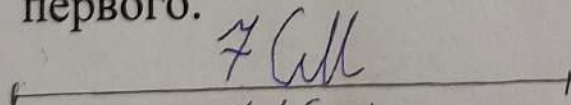 первого.
7 см